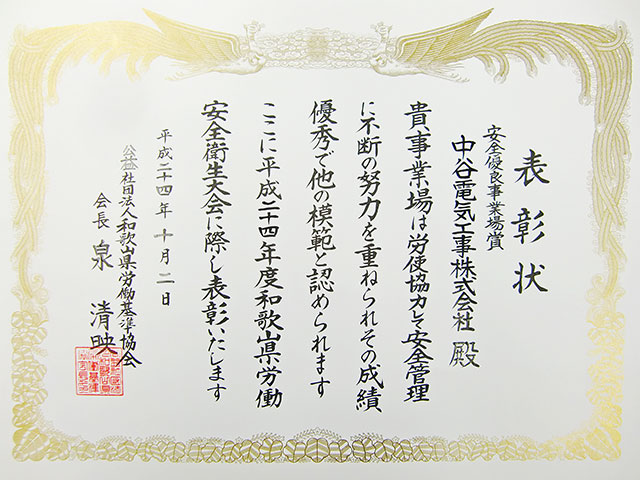 表彰状
安全優良事業場賞
中谷電気工事株式会社 殿
貴事業場は労使協力して安全管理
に不断の努力を重ねられその成績
優秀で他の模範と認められます
ここに平成二十四年度和歌山県労働
安全衛生大会に際し表彰いたします
平成二十四年十月二日
公益社団法人和歌山県労働基準協会
会長 泉 清映